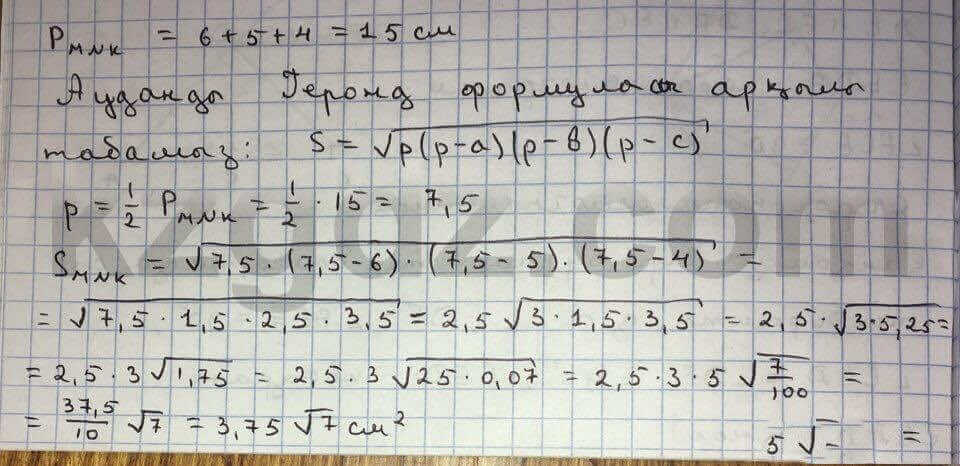 P_MNK = 6 + 5 + 4 = 15 см
Ауданды Геронд формуласы арқылы
табамыз: S = √p(p-a)(p-b)(p-c)
p = 1/2 P_MNK = 1/2 · 15 = 7,5
S_MNK = √7,5 · (7,5-6) · (7,5-5) · (7,5-4) =
= √7,5 · 1,5 · 2,5 · 3,5 = 2,5 √3 · 1,5 · 3,5 = 2,5 · √3·5,25 =
= 2,5 · 3 √1,75 = 2,5 · 3 √25 · 0,07 = 2,5 · 3 · 5 √7/100 =
= 37,5/10 √7 = 3,75 √7 см² 5 √- =
kzgdz.com